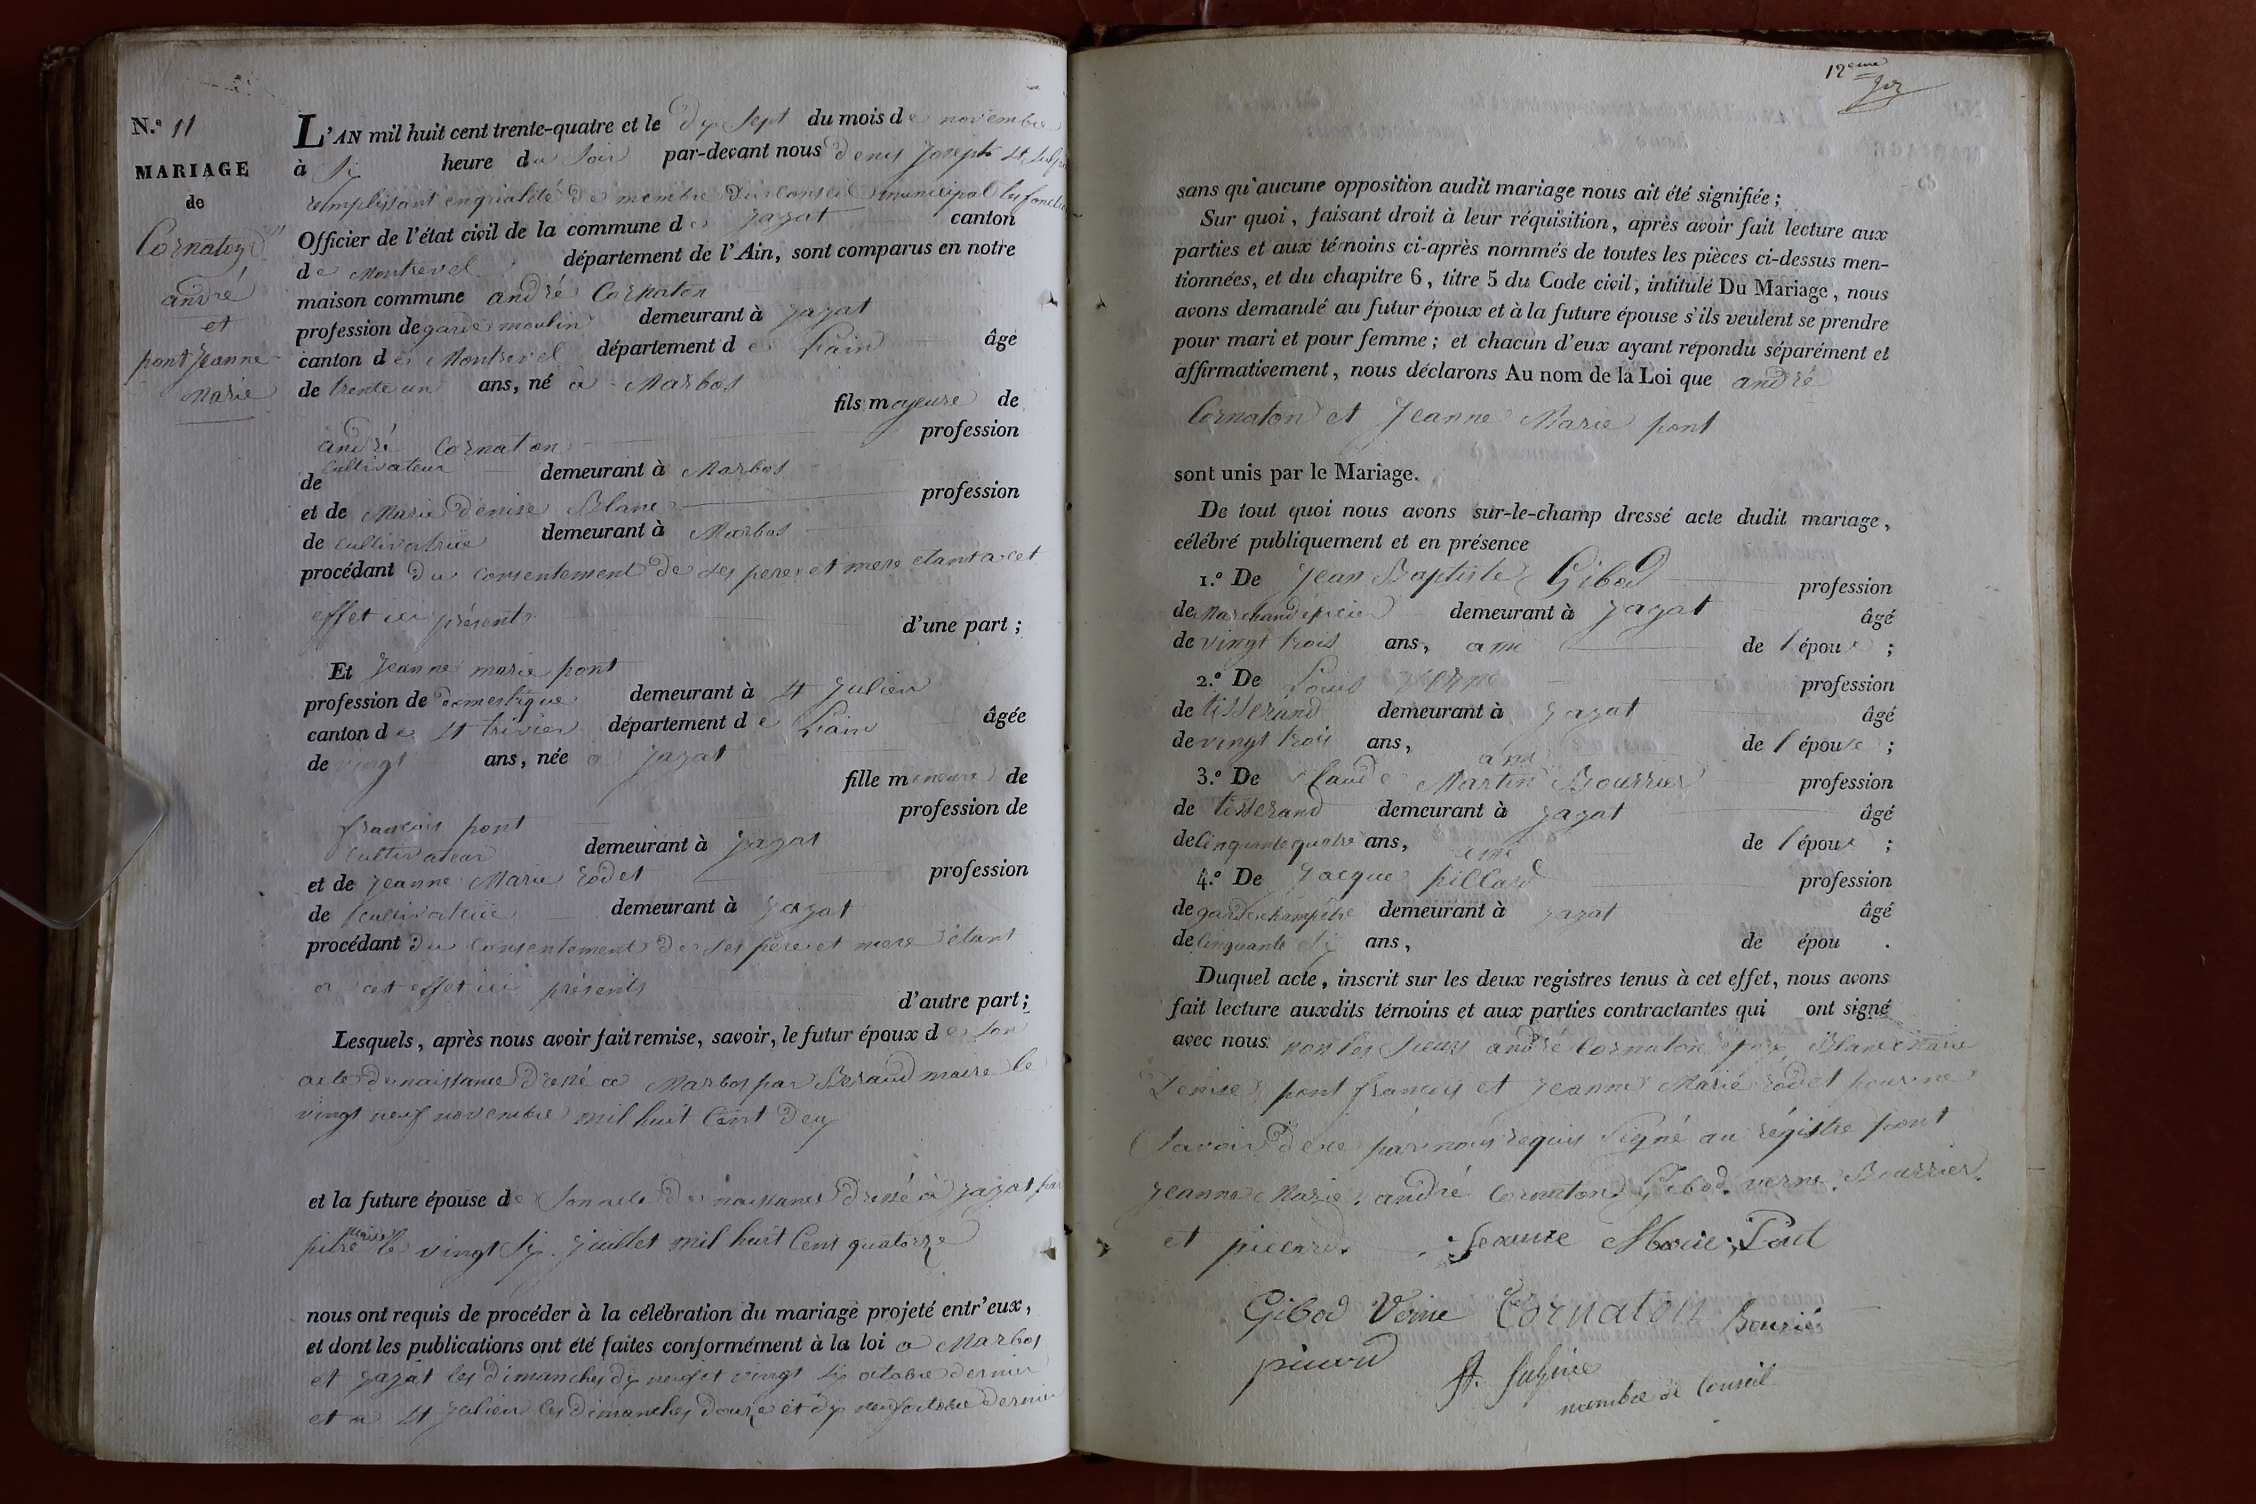 N.° 11
MARIAGE
de
Cornaton
andré
et
pont Jeanne
Marie
L'AN mil huit cent trente-quatre et le dix Sept du mois de novembre
à Six heure du Soir par-devant nous denis Joseph St Sulpice
remplissant en qualité de membre du Conseil municipal les fonctions
Officier de l'état civil de la commune de jayat canton
de Montrevel département de l'Ain, sont comparus en notre
maison commune andré Cornaton
profession de garde moulin demeurant à jayat
canton de Montrevel département de L'ain âgé
de trente un ans, né à Marbos
fils majeure de
andré Cornaton profession
de Cultivateur demeurant à Marbos
et de Marie denise Blanc profession
de Cultivatrice demeurant à Marbos
procédant du Consentement de ses pere et mere etant a cet
effet ici présents d'une part ;
Et Jeanne marie pont
profession de domestique demeurant à St Julien
canton de St trivier département de L'ain âgée
de vingt ans, née a jayat
fille mineure de
françois pont profession de
Cultivateur demeurant à jayat
et de Jeanne Marie rodet profession
de Cultivatrice demeurant à jayat
procédant : du Consentement de ses père et mere étant
a cet effet ici présents d'autre part ;
Lesquels, après nous avoir fait remise, savoir, le futur époux de Son
acte de naissance Dressé a Marbos par Beraud maire le
vingt neuf novembre mil huit Cent deux
et la future épouse de Son acte de naissance dressé à jayat par
maire le vingt Six Juillet mil huit Cent quatorze
nous ont requis de procéder à la célébration du mariage projeté entr'eux,
et dont les publications ont été faites conformément à la loi a Marbos
et jayat les dimanches dix neuf et vingt Six octobre dernier
et a St Julien les dimanches douze et dix neuf octobre dernier
12eme
sans qu'aucune opposition audit mariage nous ait été signifiée ;
Sur quoi, faisant droit à leur réquisition, après avoir fait lecture aux
parties et aux témoins ci-après nommés de toutes les pièces ci-dessus men-
tionnées, et du chapitre 6, titre 5 du Code civil, intitulé Du Mariage, nous
avons demandé au futur époux et à la future épouse s'ils veulent se prendre
pour mari et pour femme ; et chacun d'eux ayant répondu séparément et
affirmativement, nous déclarons Au nom de la Loi que andré
Cornaton et Jeanne Marie pont
sont unis par le Mariage.
De tout quoi nous avons sur-le-champ dressé acte dudit mariage,
célébré publiquement et en présence
1.° De Jean Baptiste Gibod profession
de Marchand épicier demeurant à jayat âgé
de vingt trois ans, ami de l'époux ;
2.° De Louis Verne profession
de tisserand demeurant à jayat âgé
de vingt trois ans, ami de l'époux ;
3.° De Claude Martin Bourrier profession
de tisserand demeurant à jayat âgé
de Cinquante quatre ans, ami de l'époux ;
4.° De Jacques pillard profession
de garde champêtre demeurant à jayat âgé
de Cinquante Six ans, de épou .
Duquel acte, inscrit sur les deux registres tenus à cet effet, nous avons
fait lecture auxdits témoins et aux parties contractantes qui ont signé
avec nous. non les Sieurs andré Cornaton père, Blanc Marie
Denise, pont françois et Jeanne Marie rodet pour ne
Savoir de ce par nous requis Signé au régistre pont
Jeanne Marie, andré Cornaton, Gibod, verne, Bourrier
et piccard. Jeanne Marie Pont
Gibod Verne Cornaton Bourié
picard St. Sulpice
membre de Conseil